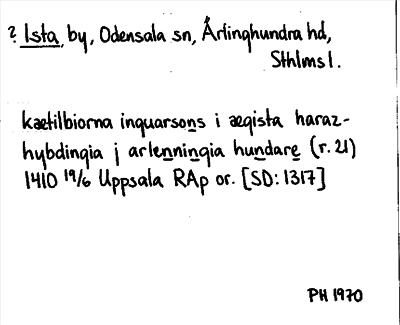 ? Ista, by, Odensala sn, Ärlinghundra hd,
Sthlms l.
kætilbiorna inquarsons i ægista haraz-
hybdingia j arlenningia hundare (r. 21)
1410 19/6 Uppsala RAp or. [SD: 1317]
PH 1970